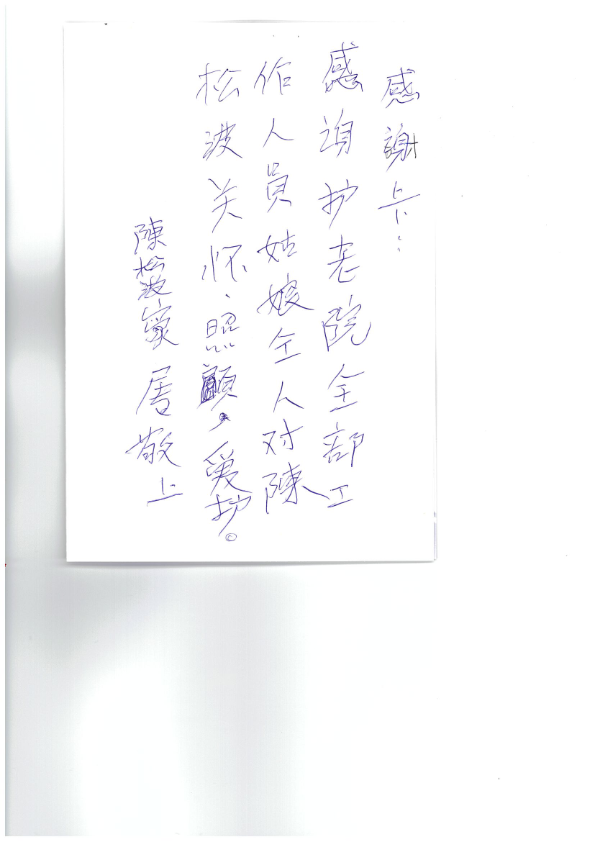 感謝卡：
感谢护老院全部工
作人員姑娘全人对陳
松波关怀、照顧，爱护。
陳松波家居敬上